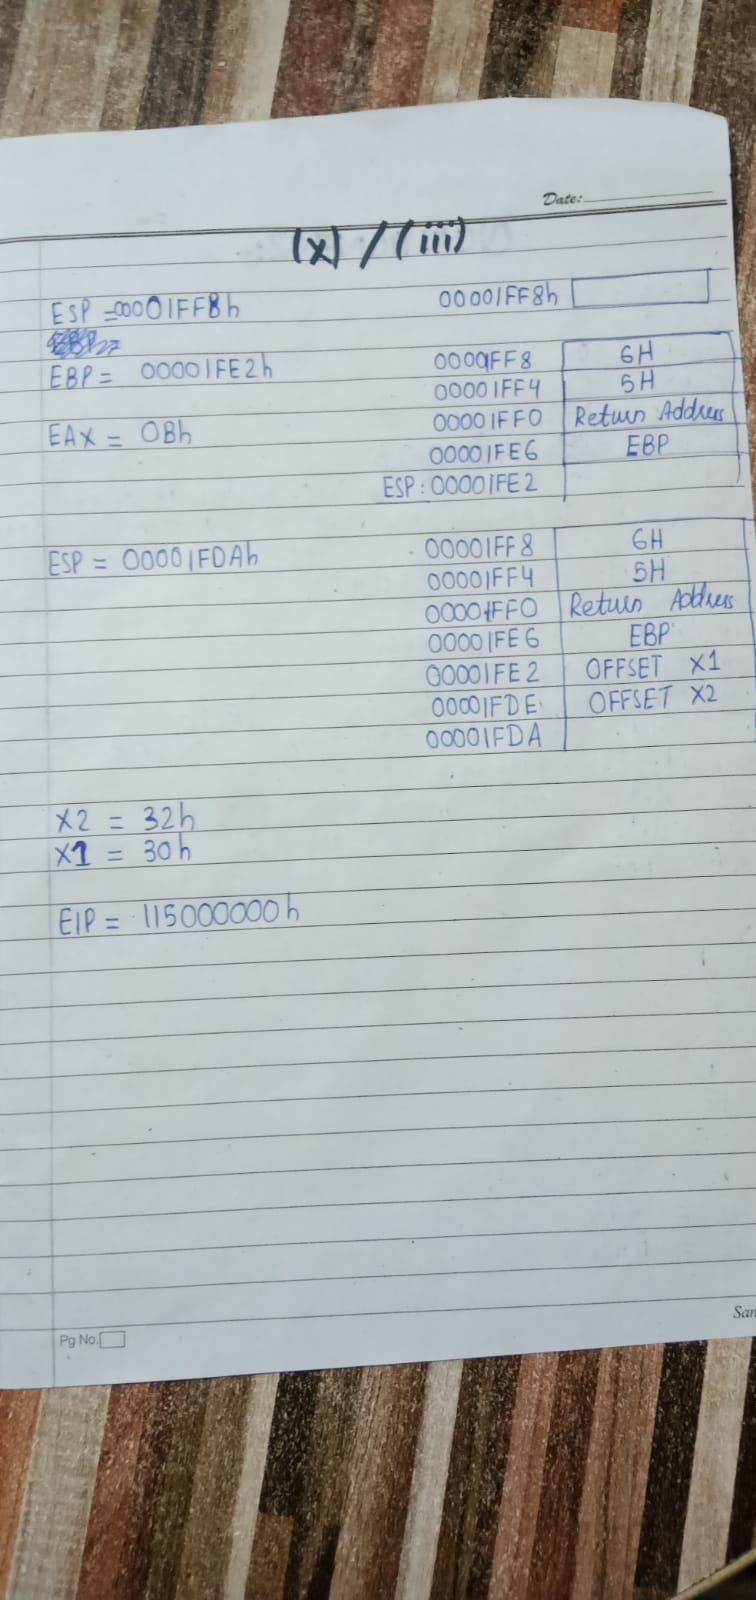 Date:
(x) / (iii)
ESP = 00001FF8h 00001FF8h
EBP = 00001FE2h 00001FF8 6H
00001FF4 5H
EAX = 0Bh 00001FF0 Return Address
00001FE6 EBP
ESP: 00001FE2
ESP = 00001FDAh 00001FF8 6H
00001FF4 5H
00001FF0 Return Address
00001FE6 EBP
00001FE2 OFFSET X1
00001FDE OFFSET X2
00001FDA
X2 = 32h
X1 = 30h
EIP = 115000000h
Pg No.